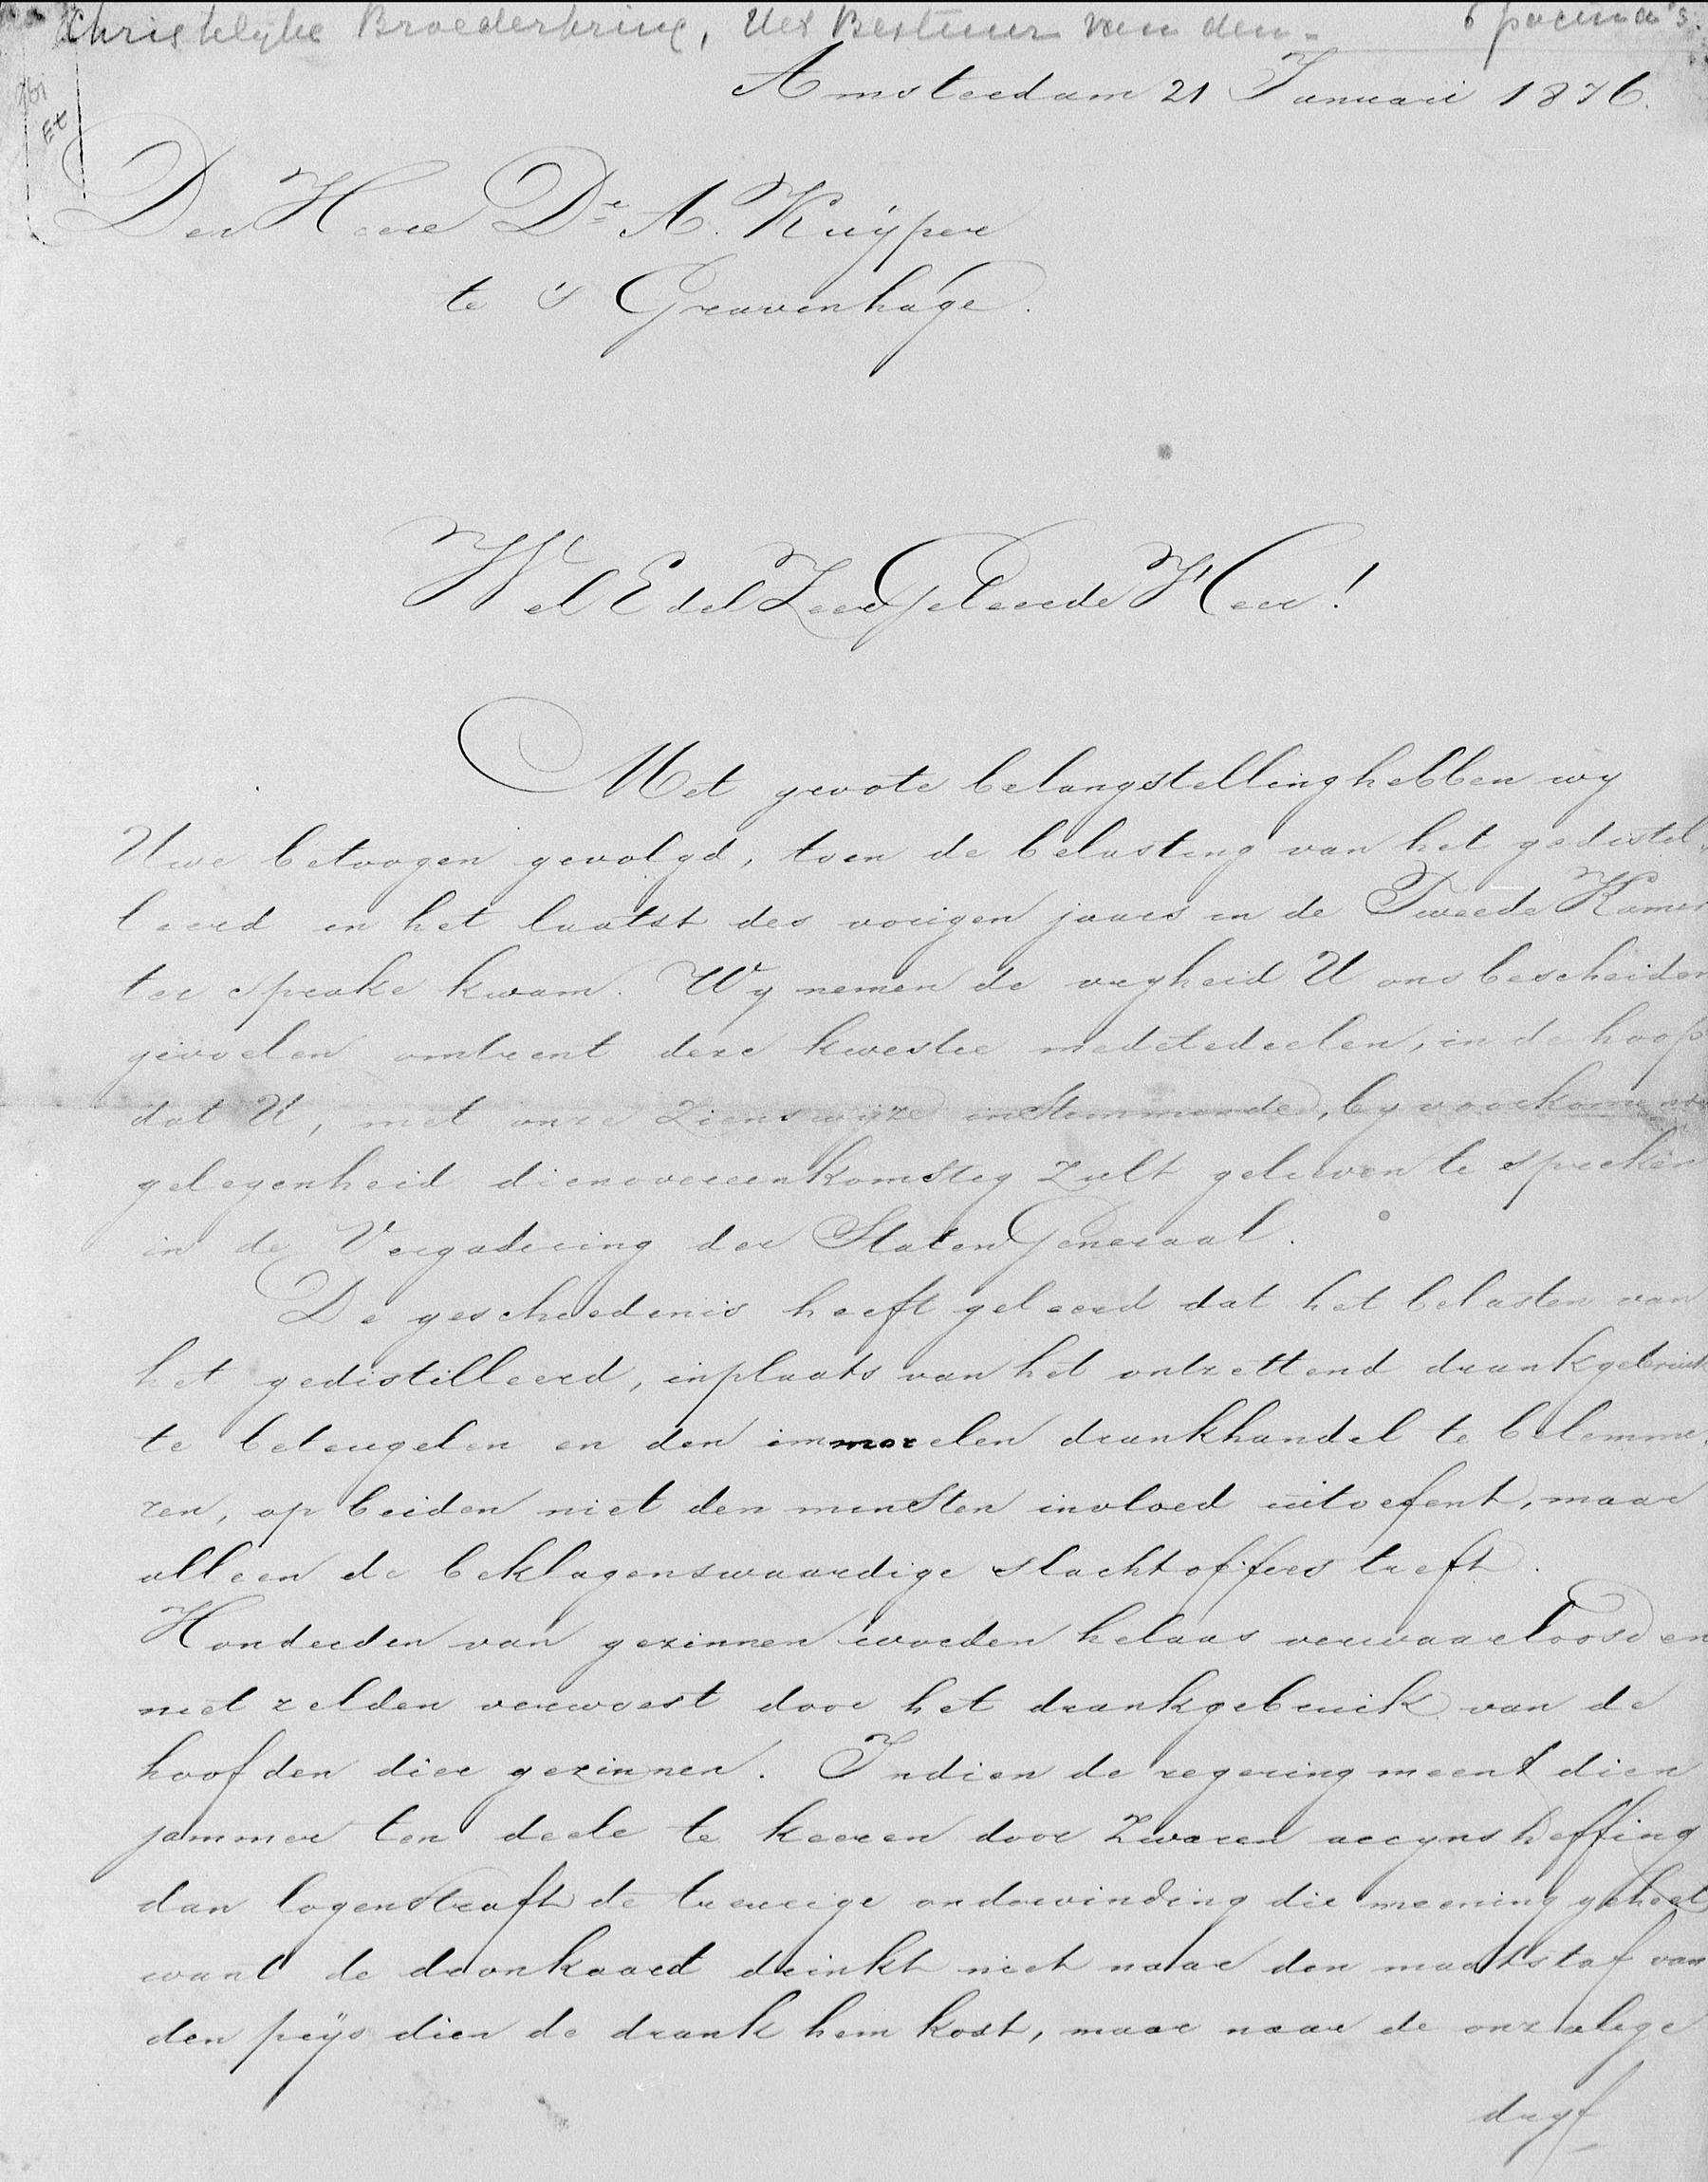 Christelyke Broederkring, Het Bestuur van den -
6 pagina's.
Amsterdam 21 Januari 1876.
Den Heere Dr A. Kuÿper
te 's Gravenhage.
WelEdelZeerGeleerde Heer!
Met groote belangstelling hebben wy
Uwe betoogen gevolgd, toen de belasting van het gedistil
leerd in het laatst des vorigen jaars in de Tweede Kamer
ter sprake kwam. Wy nemen de vryheid U ons bescheiden
gevoelen omtrent deze kwestie medetedeelen, in de hoop
dat U, met onze zienswijze instemmende, by voorkomende
gelegenheid dienovereenkomstig zult gelieven te spreken
in de Vergadering der Staten Generaal.
De geschiedenis heeft geleerd dat het belasten van
het gedistilleerd, inplaats van het ontzettend drankgebruik
te beteugelen en den immorelen drankhandel te belemme
ren, op beiden niet den minsten invloed uitoefent, maar
alleen de beklagenswaardige slachtoffers treft.
Honderden van gezinnen worden helaas verwaarloosd en
niet zelden verwoest door het drankgebruik van de
hoofden dier gezinnen. Indien de regering meent dien
jammer ten deele te keeren door zwaren accynsheffing
dan logenstraft de treurige ondervinding die meening geheel
want de dronkaard drinkt niet naar den maatstaf van
den prÿs dien de drank hem kost, maar naar de onzalige
dryf